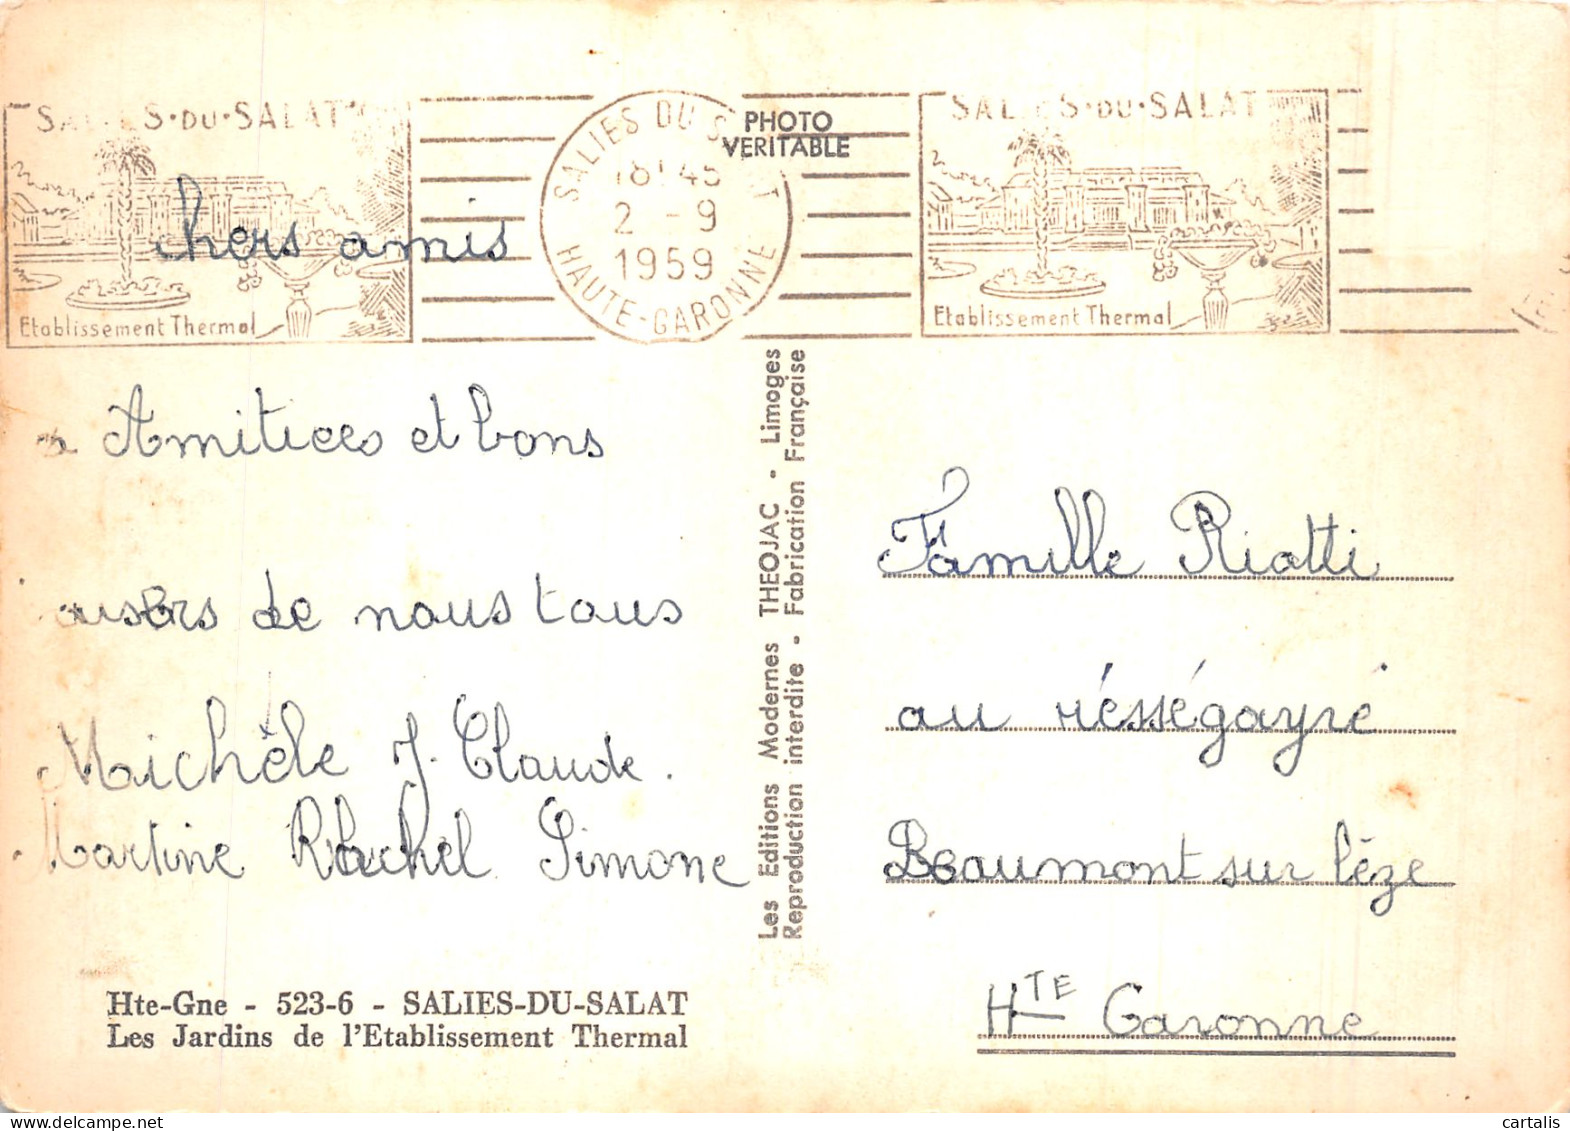 SALIES·DU·SALAT
Etablissement Thermal
SALIES DU SALAT
18 45
2 - 9
1959
HAUTE-GARONNE
PHOTO
VERITABLE
SALIES·DU·SALAT
Etablissement Thermal
chers amis
Amitiees et bons
baisers de nous tous
Michèle J. Claude.
Martine Rachel Simone
Hte-Gne - 523-6 - SALIES-DU-SALAT
Les Jardins de l'Etablissement Thermal
Les Editions Modernes THEOJAC - Limoges
Reproduction interdite - Fabrication Française
Famille Riotti
au résségayré
Beaumont sur lèze
HTE Garonne
cartalis